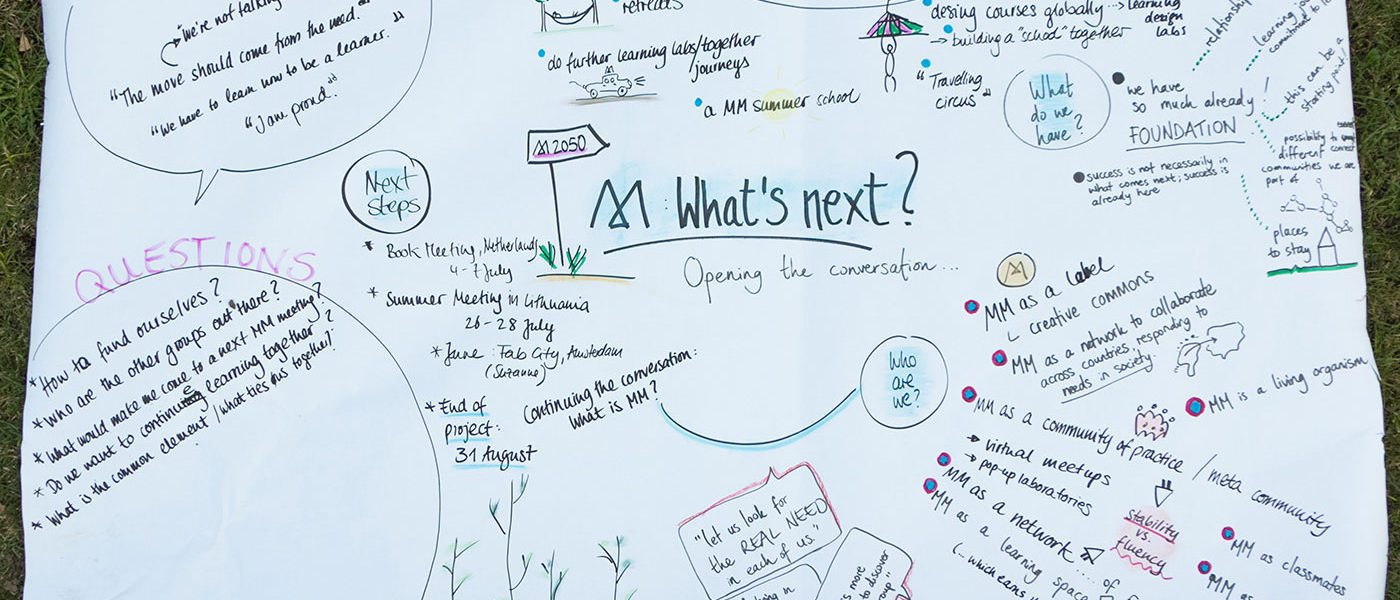 "we're not talking
"The move should come from the need."
"We have to learn how to be a learner."
"I am proud."
retreats
do further learning labs/together
journeys
a MM summer school
desing courses globally → learning
design
labs
→ building a "school" together
"Travelling
circus"
What
do we
have?
we have
so much already!
FOUNDATION
success is not necessarily in
what comes next; success is
already here
relationship
learning
this can be a
starting point!
possibility to
different
communities we are
part of
places
to stay
M 2050
M: What's next?
Opening the conversation...
Next
steps
* Book Meeting, Netherlands
4-7 July
* Summer Meeting in Lithuania
26-28 July
* June: Fab City, Amsterdam
(Suzanne)
* End of
project:
31 August
Continuing the conversation:
what is MM?
QUESTIONS
* How to fund ourselves?
* Who are the other groups out there?
* What would make me come to a next MM meeting?
* Do we want to continue learning together?
* What is the common element / what ties us together?
Who
are
we?
M
MM as a label
creative commons
MM as a network to collaborate
across countries, responding to
needs in society.
MM is a living organism
MM as a community of practice / meta community
→ virtual meetups
→ pop-up laboratories
Stability
vs.
fluency
MM as a network.... of
MM as a learning space
(...which
MM as classmates
MM as
"let us look for
the REAL NEED
in each of us."
is more
to discover